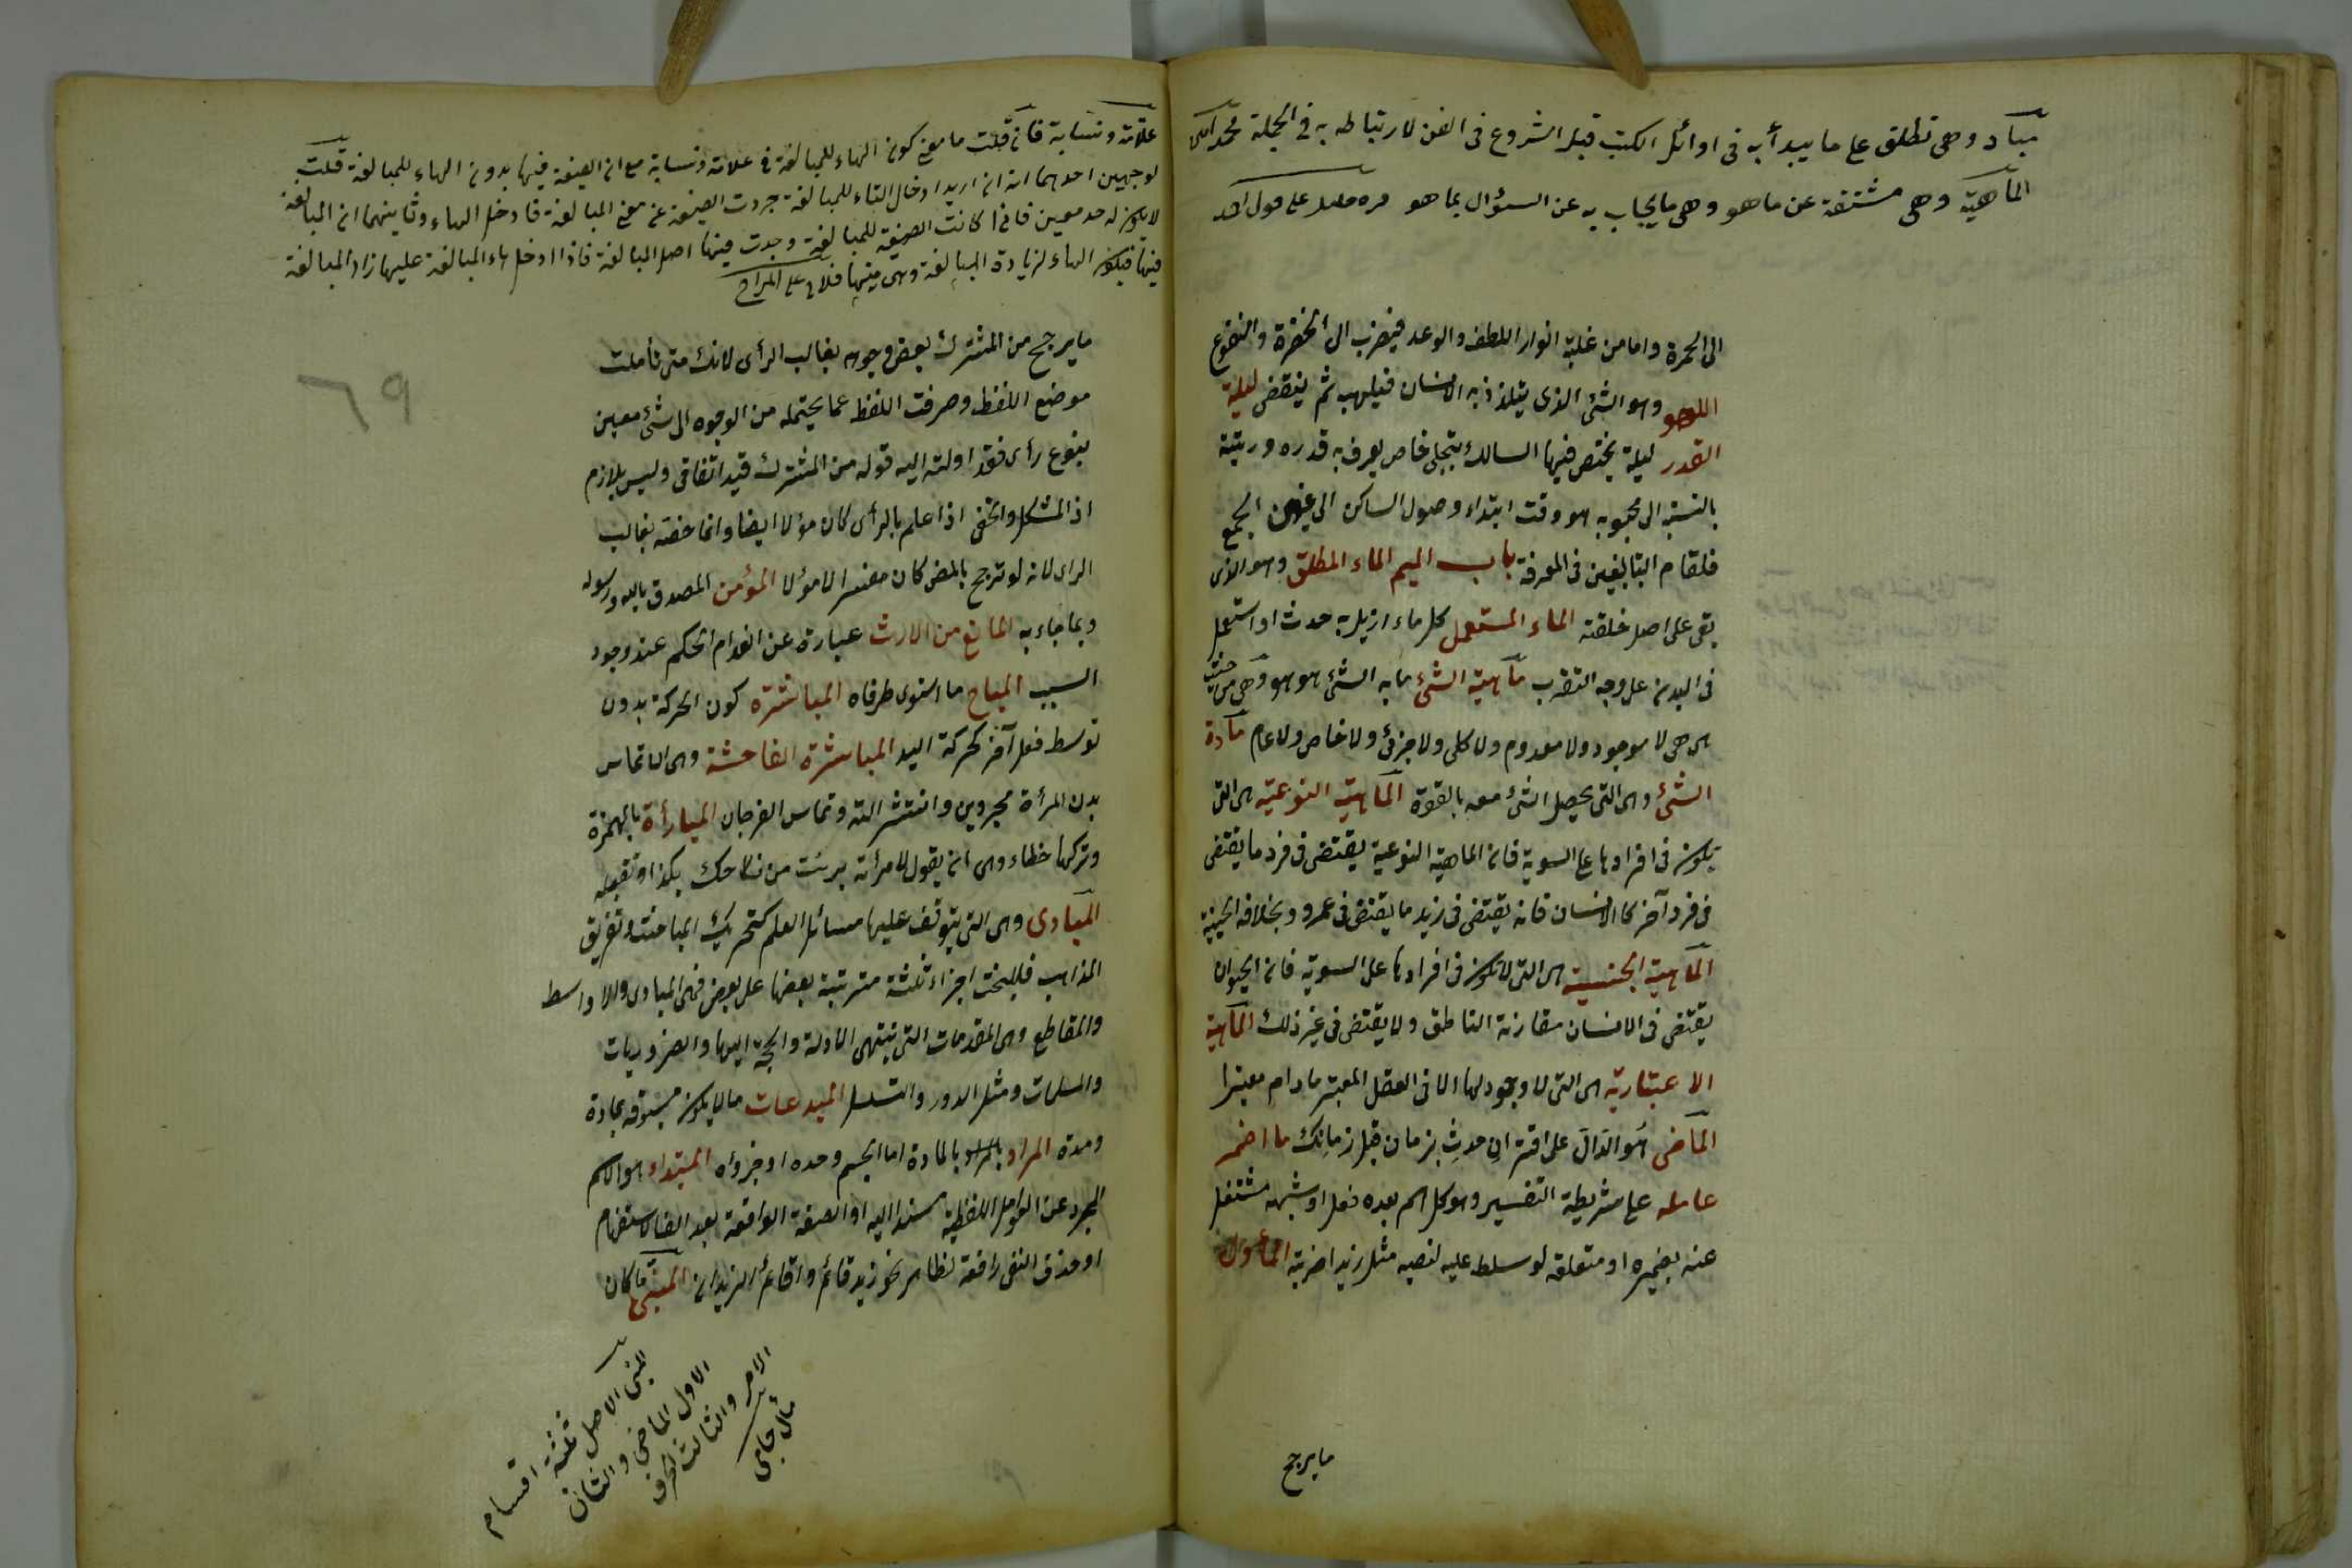 مباد وهى تطلق على ما يبدأ به فى اوائل الكتب قبل الشروع فى الفن لارتباطه به فى الجملة محمد امين
الماهية وهى مشتقة عن ما هو وهى ما يجاب به عن السؤال بما هو على قول احمد
الى الحمرة واما من غلبة انوار اللطف والوعد فيضرب الى الخضرة والنضوع
اللهو وهو الشئ الذى يتلذذ به الانسان فيلهيه ثم ينقضى ليلة
القدر ليلة يختص فيها السالك بتجلى خاص يعرف به قدره ورتبته
بالنسبة الى محبوبه هو وقت ابتداء وصول السالك الى عين الجمع
فلقام البالغين فى المعرفة باب الميم الماء المطلق وهو الذى
بقى على اصل خلقته الماء المستعمل كل ماء ازيل به حدث او استعمل
فى البدن على وجه التقرب ماهية الشئ ما به الشئ هو هو وهى من حيث
هى هى لا موجود ولا معدوم ولا كلى ولا جزئى ولا خاص ولا عام مادة
الشئ وهى التى يحصل الشئ معه بالقوة الماهية النوعية هى التى
تكون فى افرادها على السوية فان الماهية النوعية يقتضى فى فرد ما يقتضى
فى فرد آخر كالانسان فانه يقتضى فى زيد ما يقتضى فى عمرو وبخلافه الجنسية
الماهية الجنسية هى التى لا تكون فى افرادها على السوية فان الحيوان
يقتضى فى الانسان مقارنة الناطق ولا يقتضى فى غير ذلك الماهية
الاعتبارية هى التى لا وجود لها الا فى العقل المعتبر مادام معتبرا
الماضى هو الدال على اقتران حدث بزمان قبل زمانك ما اضمر
عامله على شريطة التفسير وهو كل اسم بعده فعل او شبهه مشتغل
عنه بضميره او متعلقه لو سلط عليه لنصبه مثل زيدا ضربته المأول
ما يرجح
علامة ونسابة فان قلت ما معنى كون الهاء للمبالغة فى علامة ونسابة مع ان الصيغة فيها بدون الهاء للمبالغة قلت
لوجهين احدهما انه ان اريد ادخال التاء للمبالغة جردت الصيغة عن معنى المبالغة فادخل الهاء وثانيهما ان المبالغة
لا يكون له حد معين فان كانت الصيغة للمبالغة وجدت فيها اصل المبالغة فاذا ادخل هاء المبالغة عليها زاد المبالغة
فيها فيكون الهاء لزيادة المبالغة وهى فيها على المراح
٦٩
ما يرجح من المشترك بعض وجوهه بغالب الرأى لانك متى تأملت
موضع اللفظ وصرفت اللفظ عما يحتمله من الوجوه الى شئ معين
بنوع رأى فقد اولته اليه قوله من المشترك قيد اتفاقى وليس بلازم
اذ المشكل والخفى اذا علم بالرأى كان مؤلا ايضا وانما خصه بغالب
الراى لانه لو ترجح بالنص كان مفسرا لا مؤلا المؤمن المصدق بالله ورسوله
وبما جاء به المانع من الارث عبارة عن انعدام الحكم عند وجود
السبب المباح ما استوى طرفاه المباشرة كون الحركة بدون
توسط فعل آخر كحركة اليد المباشرة الفاحشة وهى ان تماس
بدن المرأة مجردين وانتشر آلته وتماس الفرجان المبارأة بالهمزة
وتركها خطاء وهى ان يقول لامرأته برئت من نكاحك بكذا وتقبله
المبادى وهى التى يتوقف عليها مسائل العلم كتحرير المباحث وتقريق
المذاهب فللبحث اجزاء ثلثة مترتبة بعضها على بعض فهى المبادى والاواسط
والمقاطع وهى المقدمات التى ينتهى الادلة والحجة اليها والضروريات
والمسلمات ومثل الدور والتسلسل المبدعات ما لا يكون مسبوقه بمادة
ومدة المراد بالمراد بالمادة اما الجسم وحده او جزؤه المبتداء هو الاسم
المجرد عن العوامل اللفظية مسندا اليه او الصفة الواقعة بعد الف الاستفهام
او حذف النفى رافعة لظاهر نحو زيد قائم واقائم الزيدان المبنى ما كان
المبنى الاصل ثلثة اقسام
الاول الماضى والثانى
الامر والثالث الحرف
جامى